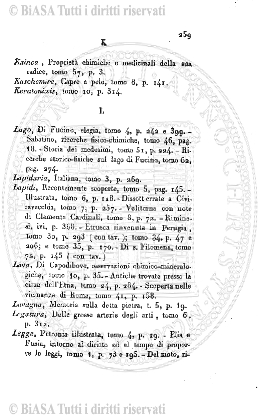 © BiASA Tutti i diritti riservati
259
K
Kainca, Proprietà chimiche e medicinali della sua
radice, tomo 57, p. 3.
Kaschemire, Capre a pelo, tomo 8, p. 141.
Keratonixis, tomo 10, p. 314.
L
Lago, Di Fucino, elegia, tomo 4, p. 242 e 399. -
Sabatino, ricerche fisico-chimiche, tomo 46, pag.
18. - Storia dei medesimi, tomo 51, p. 224. - Ri-
cerche storico-fisiche sul lago di Fucino, tomo 62,
pag. 274.
Lapidaria, Italiana, tomo 3, p. 269.
Lapidi, Recentemente scoperte, tomo 5, pag. 145. -
Illustrata, tomo 6, p. 128. - Dissotterrate a Civi-
tavecchia, tomo 7, p. 257. - Veliterna con note
di Clemente Cardinali, tomo 8, p. 72. - Rimine-
si, ivi, p. 368. - Etrusca rinvenuta in Perugia,
Tomo 32, p. 293 (con tav.); tomo 34, p. 47 e
296; e tomo 35, p. 170. - Di s. Filomena, tomo
72, p. 245 (con tav.)
Lava, Di Capodibove, osservazioni chimico-mineralo-
giche, tomo 10, p. 35. - Antiche trovate presso la
cima dell'Etna, tomo 24, p. 264. - Scoperta nelle
vicinanze di Roma, tomo 41, p. 158.
Lavagna, Memoria sulla detta pietra, t. 5, p. 19.
Legatura, Delle grosse arterie degli arti, tomo 6,
p. 312.
Legge, Petronia illustrata, tomo 4, p. 19. - Elia e
Fusia, intorno al diritto ed al tempo di propor-
re lo leggi, tomo 1, p. 73 e 195. - Del moto, ri-
© BiASA Tutti i diritti riservati